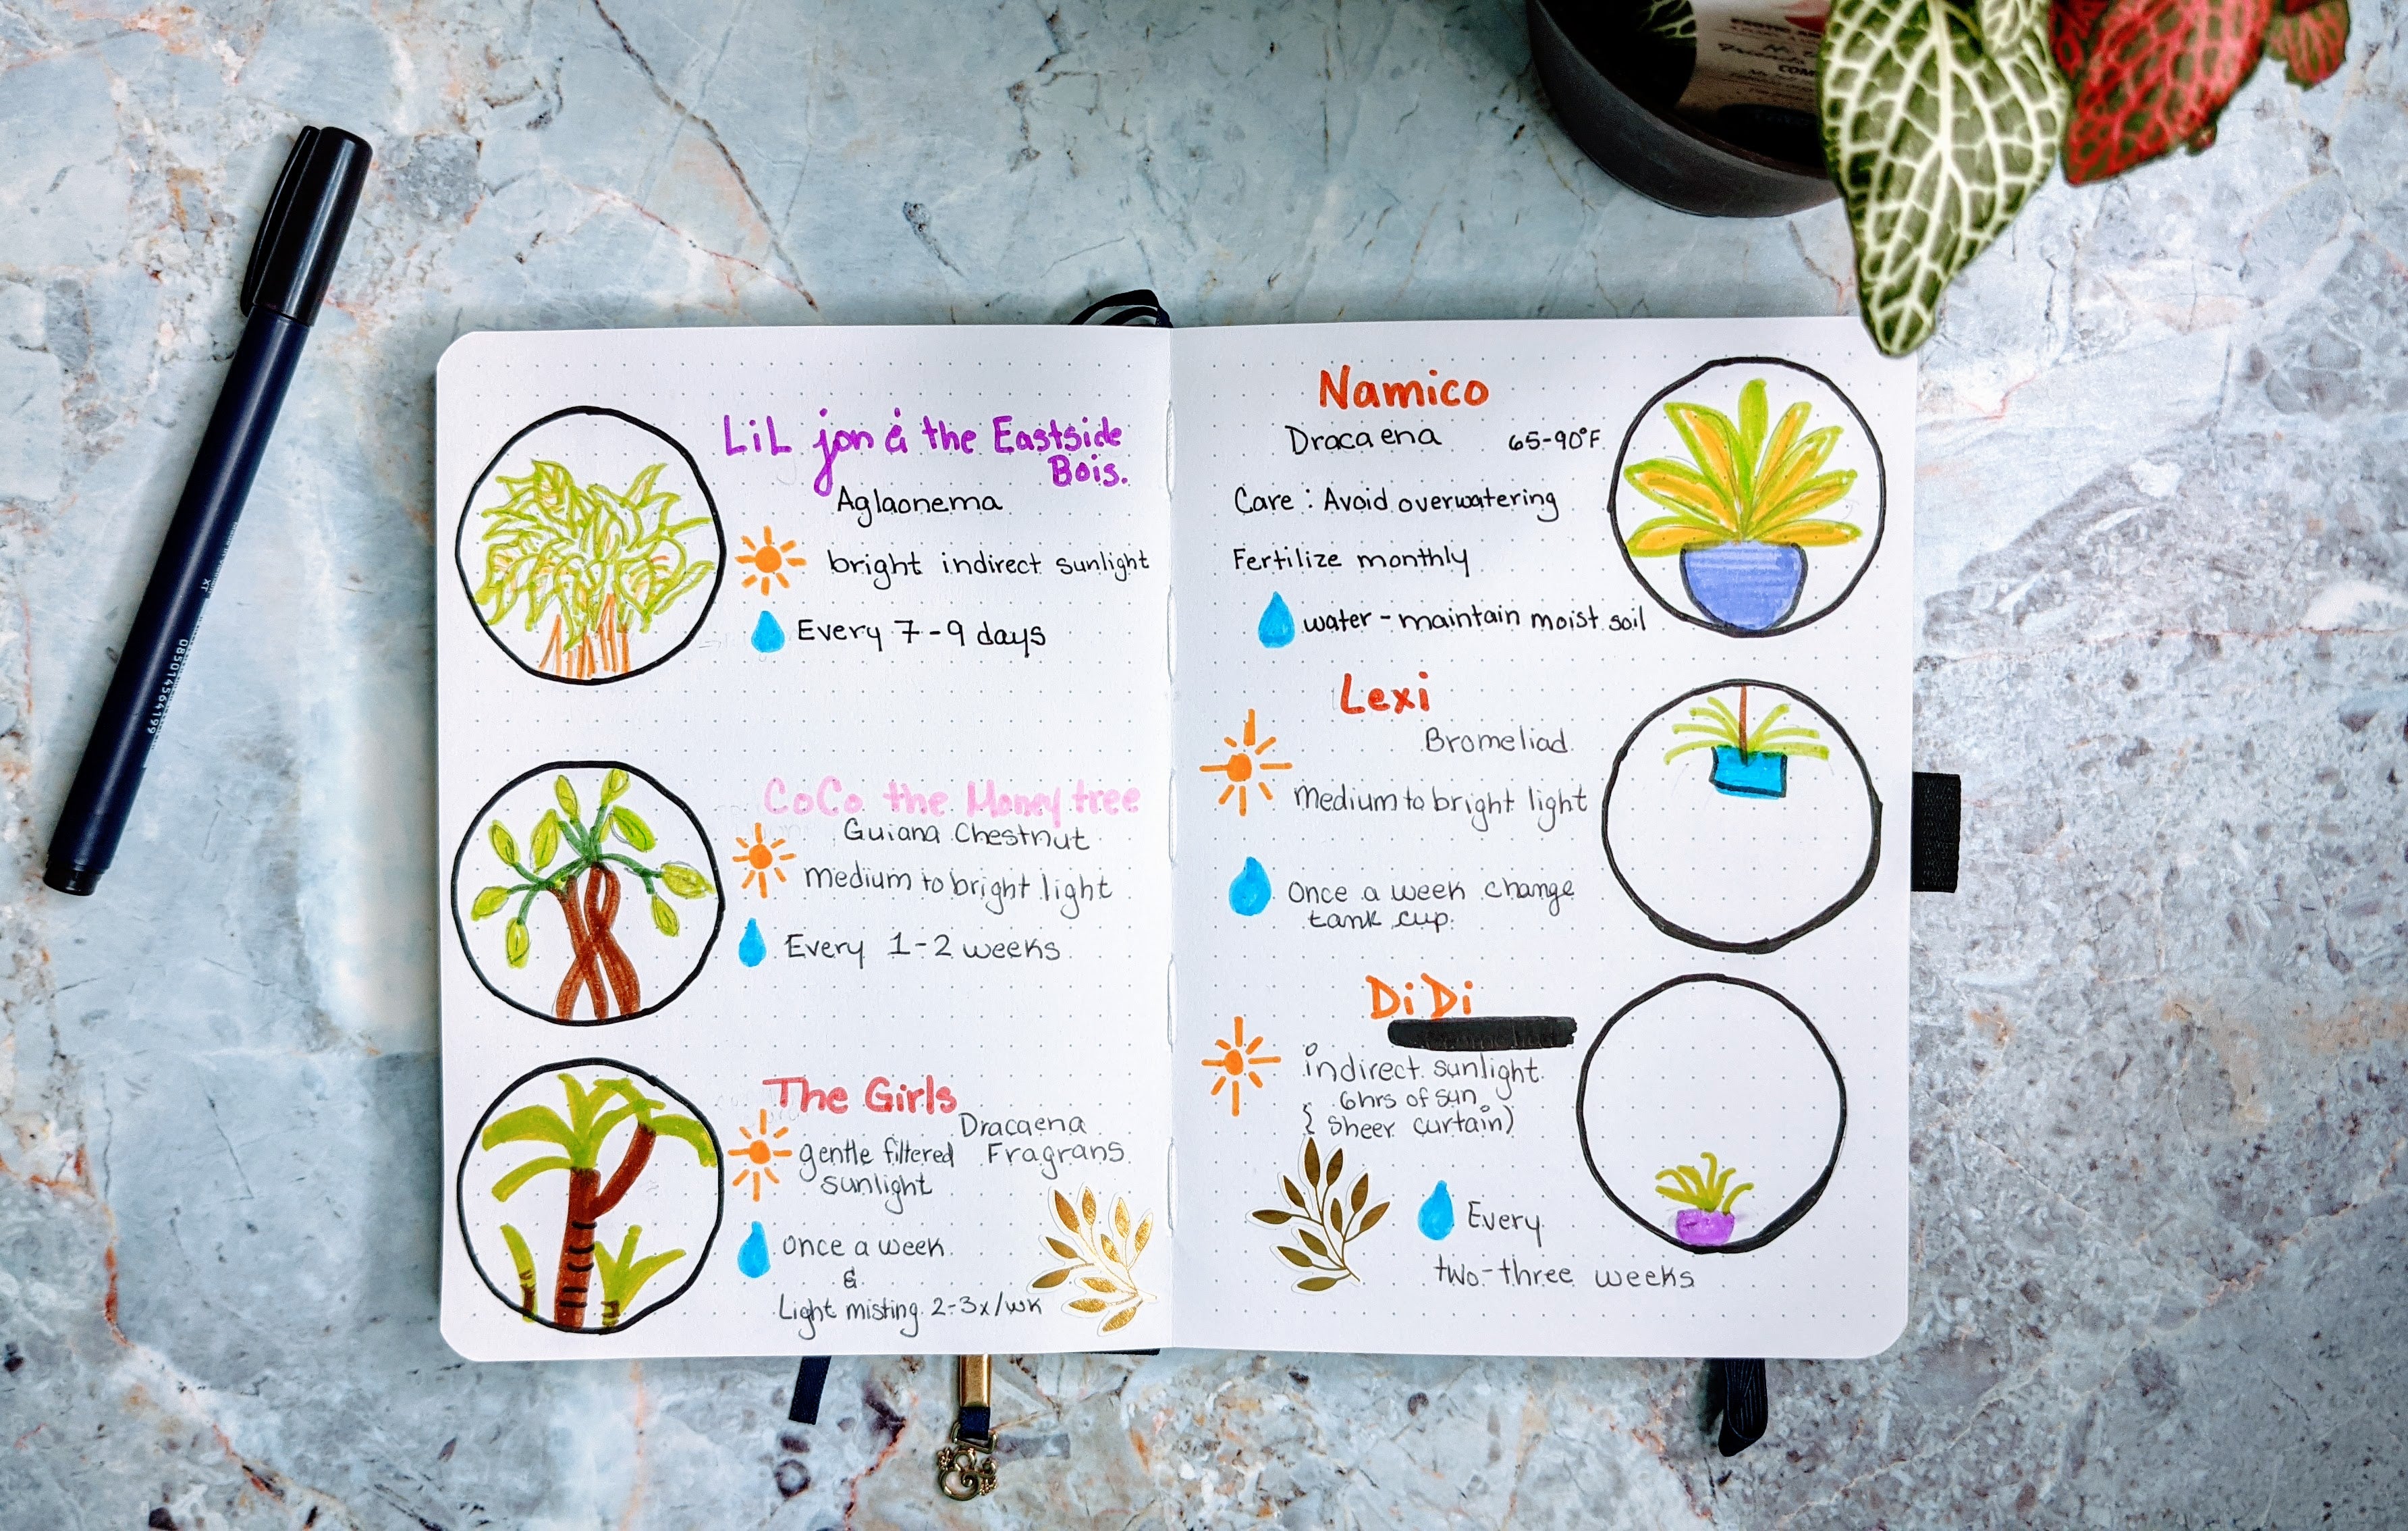 LiL jon & the Eastside
Bois.
Aglaonema
bright indirect sunlight
Every 7-9 days
CoCo the Money tree
Guiana Chestnut
medium to bright light
Every 1-2 weeks
The Girls
Dracaena
Fragrans
gentle filtered
sunlight
once a week
&
Light misting 2-3x/wk
Namico
Dracaena 65-90°F
Care: Avoid overwatering
Fertilize monthly
water - maintain moist soil
Lexi
Bromeliad
Medium to bright light
Once a week change
tank cup.
DiDi
indirect sunlight
6hrs of sun
{ sheer curtain)
Every
two-three weeks
XT
085014564199
COM